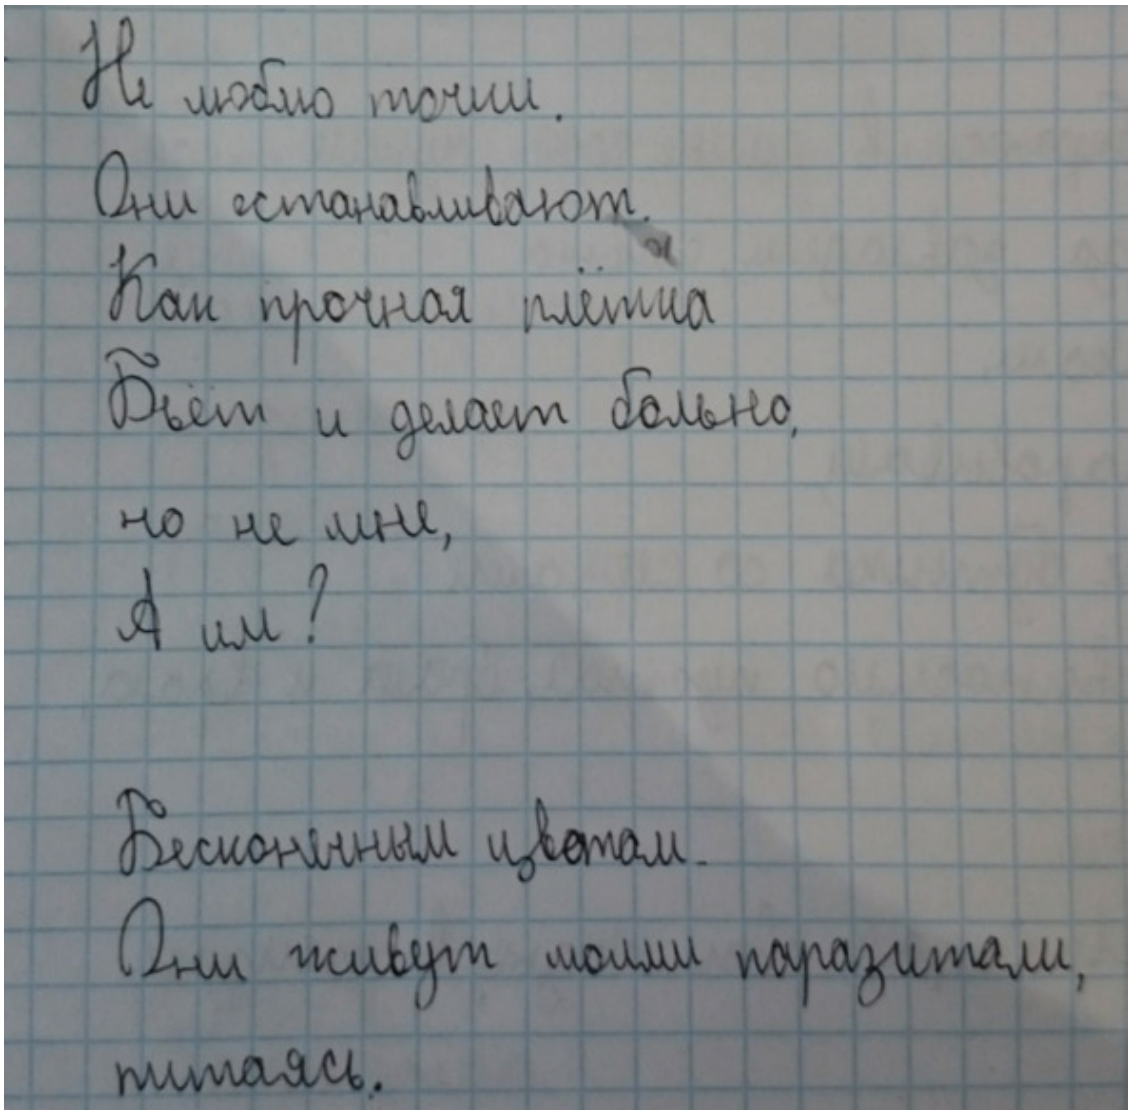 Не люблю точки.
Они останавливают.
Как прочная плётка
Бьёт и делает больно,
но не мне,
А им?
Бесконечным цветам.
Они живут моими паразитами,
питаясь.